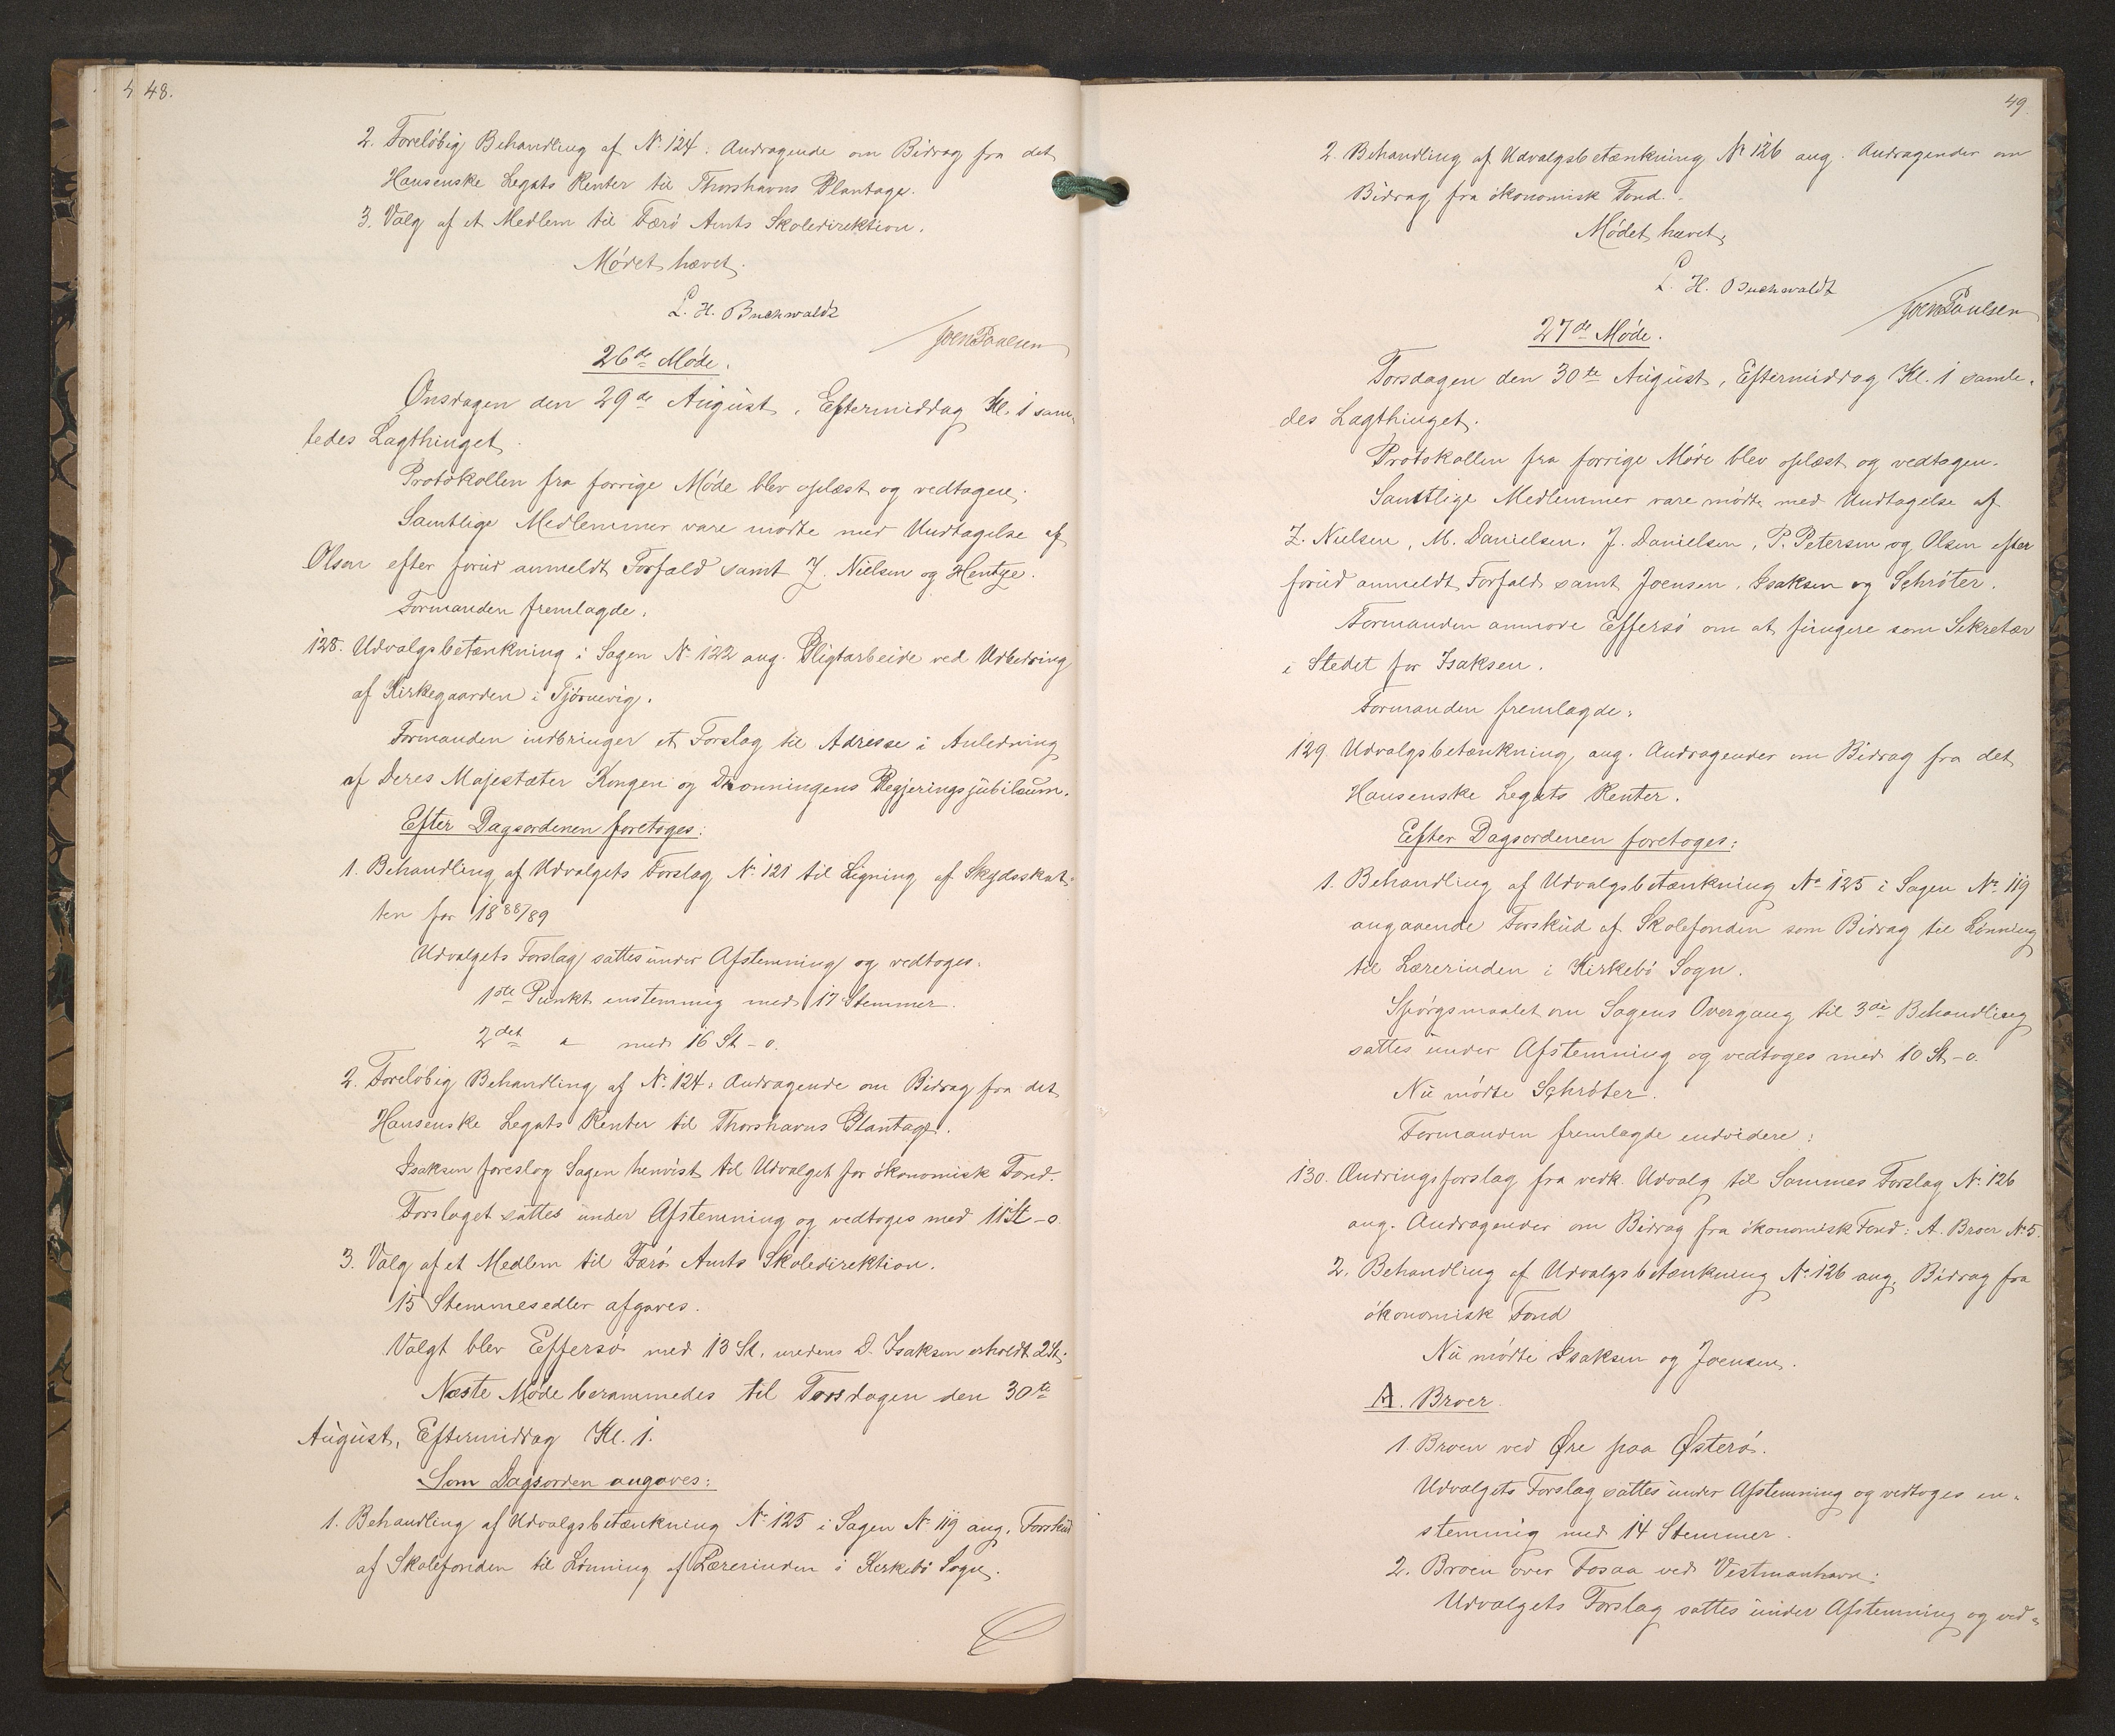 48.
2. Foreløbig Behandling af No. 124. Andragende om Bidrag fra det
Hansenske Legats Renter til Thorshavns Plantage.
3. Valg af et Medlem til Færø Amts Skoledirektion.
Mødet hævet.
L. H. Buchwaldt
Joen Poulsen
26de Møde.
Onsdagen den 29de August, Eftermiddag Kl. 1 sam-
ledes Lagthinget.
Protokollen fra forrige Møde blev oplæst og vedtagen.
Samtlige Medlemmer vare mødte med Undtagelse af
Olsen efter forud anmeldt Forfald samt J. Nielsen og Hentze.
Formanden fremlagde:
128. Udvalgsbetænkning i Sagen No. 122 ang. Pligtarbeide ved Udbedring
af Kirkegaarden i Tjørnevig.
Formanden indbringer et Forslag til Adresse i Anledning
af Deres Majestæter Kongen og Dronningens Regjeringsjubilæum.
Efter Dagsordenen foretoges:
1. Behandling af Udvalgets Forslag No. 121 til Ligning af Skydsskat-
ten for 1888/89
Udvalgets Forslag sattes under Afstemning og vedtoges.
1ste Punkt enstemmig med 17 Stemmer.
2det " med 16 St - 0.
2. Foreløbig Behandling af No. 124: Andragende om Bidrag fra det
Hansenske Legats Renter til Thorshavns Plantage.
Isaksen foreslog Sagen henvist til Udvalget for økonomisk Fond.
Forslaget sattes under Afstemning og vedtoges med 11 St - 0
3. Valg af et Medlem til Færø Amts Skoledirektion.
15 Stemmesedler afgaves.
Valgt blev Effersø med 13 St. medens D. Isaksen erholdt 2 St.
Næste Møde berammedes til Torsdagen den 30te
August, Eftermiddag Kl. 1.
Som Dagsorden angaves:
1. Behandling af Udvalgsbetænkning No. 125 i Sagen No. 119 ang. Forskud
af Skolefonden til Lønning af Lærerinden i Kirkebø Sogn.
49
2. Behandling af Udvalgsbetænkning No 126 ang. Andragender om
Bidrag fra økonomisk Fond.
Mødet hævet.
L. H. Buchwaldt
Joen Poulsen
27de Møde.
Torsdagen den 30te August, Eftermiddag Kl. 1 samle-
des Lagthinget.
Protokollen fra forrige Møde blev oplæst og vedtagen.
Samtlige Medlemmer vare mødte med Undtagelse af
Z. Nielsen, M. Danielsen, J. Danielsen, P. Petersen og Olsen efter
forud anmeldt Forfald samt Joensen, Isaksen og Schrøter.
Formanden anmode Effersø om at fungere som Sekretær
i Stedet for Isaksen.
Formanden fremlagde:
129 Udvalgsbetænkning ang. Andragender om Bidrag fra det
Hansenske Legats Renter.
Efter Dagsordenen foretoges:
1. Behandling af Udvalgsbetænkning No. 125 i Sagen No. 119
angaaende Forskud af Skolefonden som Bidrag til Lønning
til Lærerinden i Kirkebø Sogn.
Spørgsmaalet om Sagens Overgang til 3die Behandling
sattes under Afstemning og vedtoges med 10 St - 0.
Nu mødte Schrøter.
Formanden fremlagde endvidere:
130. Ændringsforslag fra vedk. Udvalg til Sammes Forslag No. 126
ang. Andragender om Bidrag fra økonomisk Fond: A. Broer No 5.
2. Behandling af Udvalgsbetænkning No. 126 ang. Bidrag fra
økonomisk Fond
Nu mødte Isaksen og Joensen.
A. Broer.
1. Broen ved Øre paa Østerø.
Udvalgets Forslag sattes under Afstemning og vedtoges en-
stemmig med 14 Stemmer.
2. Broen over Fosaa ved Vestmanhavn:
Udvalgets Forslag sattes under Afstemning og ved-